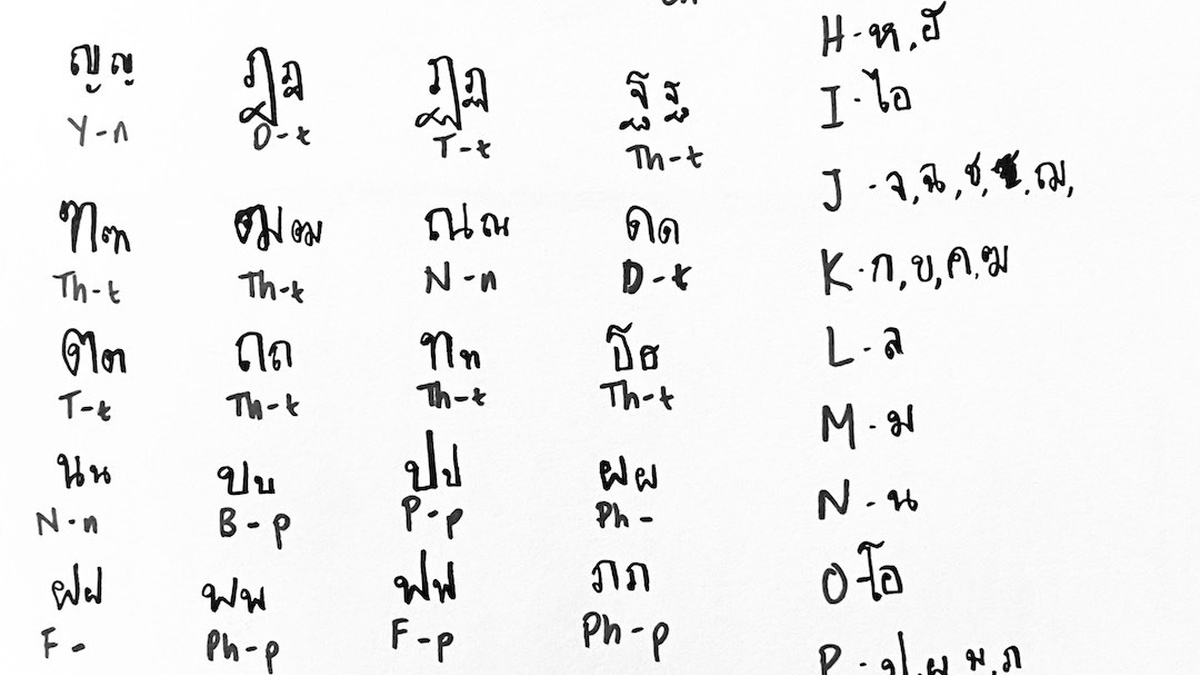 ญ ญ
Y-n
ฎ ฎ
D-t
ฏ ฏ
T-t
ฐ ฐ
Th-t
ฑ ฑ
Th-t
ฒ ฒ
Th-t
ณ ณ
N-n
ด ด
D-t
ต ต
T-t
ถ ถ
Th-t
ท ท
Th-t
ธ ธ
Th-t
น น
N-n
บ บ
B-p
ป ป
P-p
ผ ผ
Ph-
ฝ ฝ
F-
พ พ
Ph-p
ฟ ฟ
F-p
ภ ภ
Ph-p
H-ห,ฮ
I-ไอ
J-จ,ฉ,ช,ฌ,
K-ก,ข,ค,ฆ
L-ล
M-ม
N-น
O-โอ
P-ป,ผ,พ,ภ